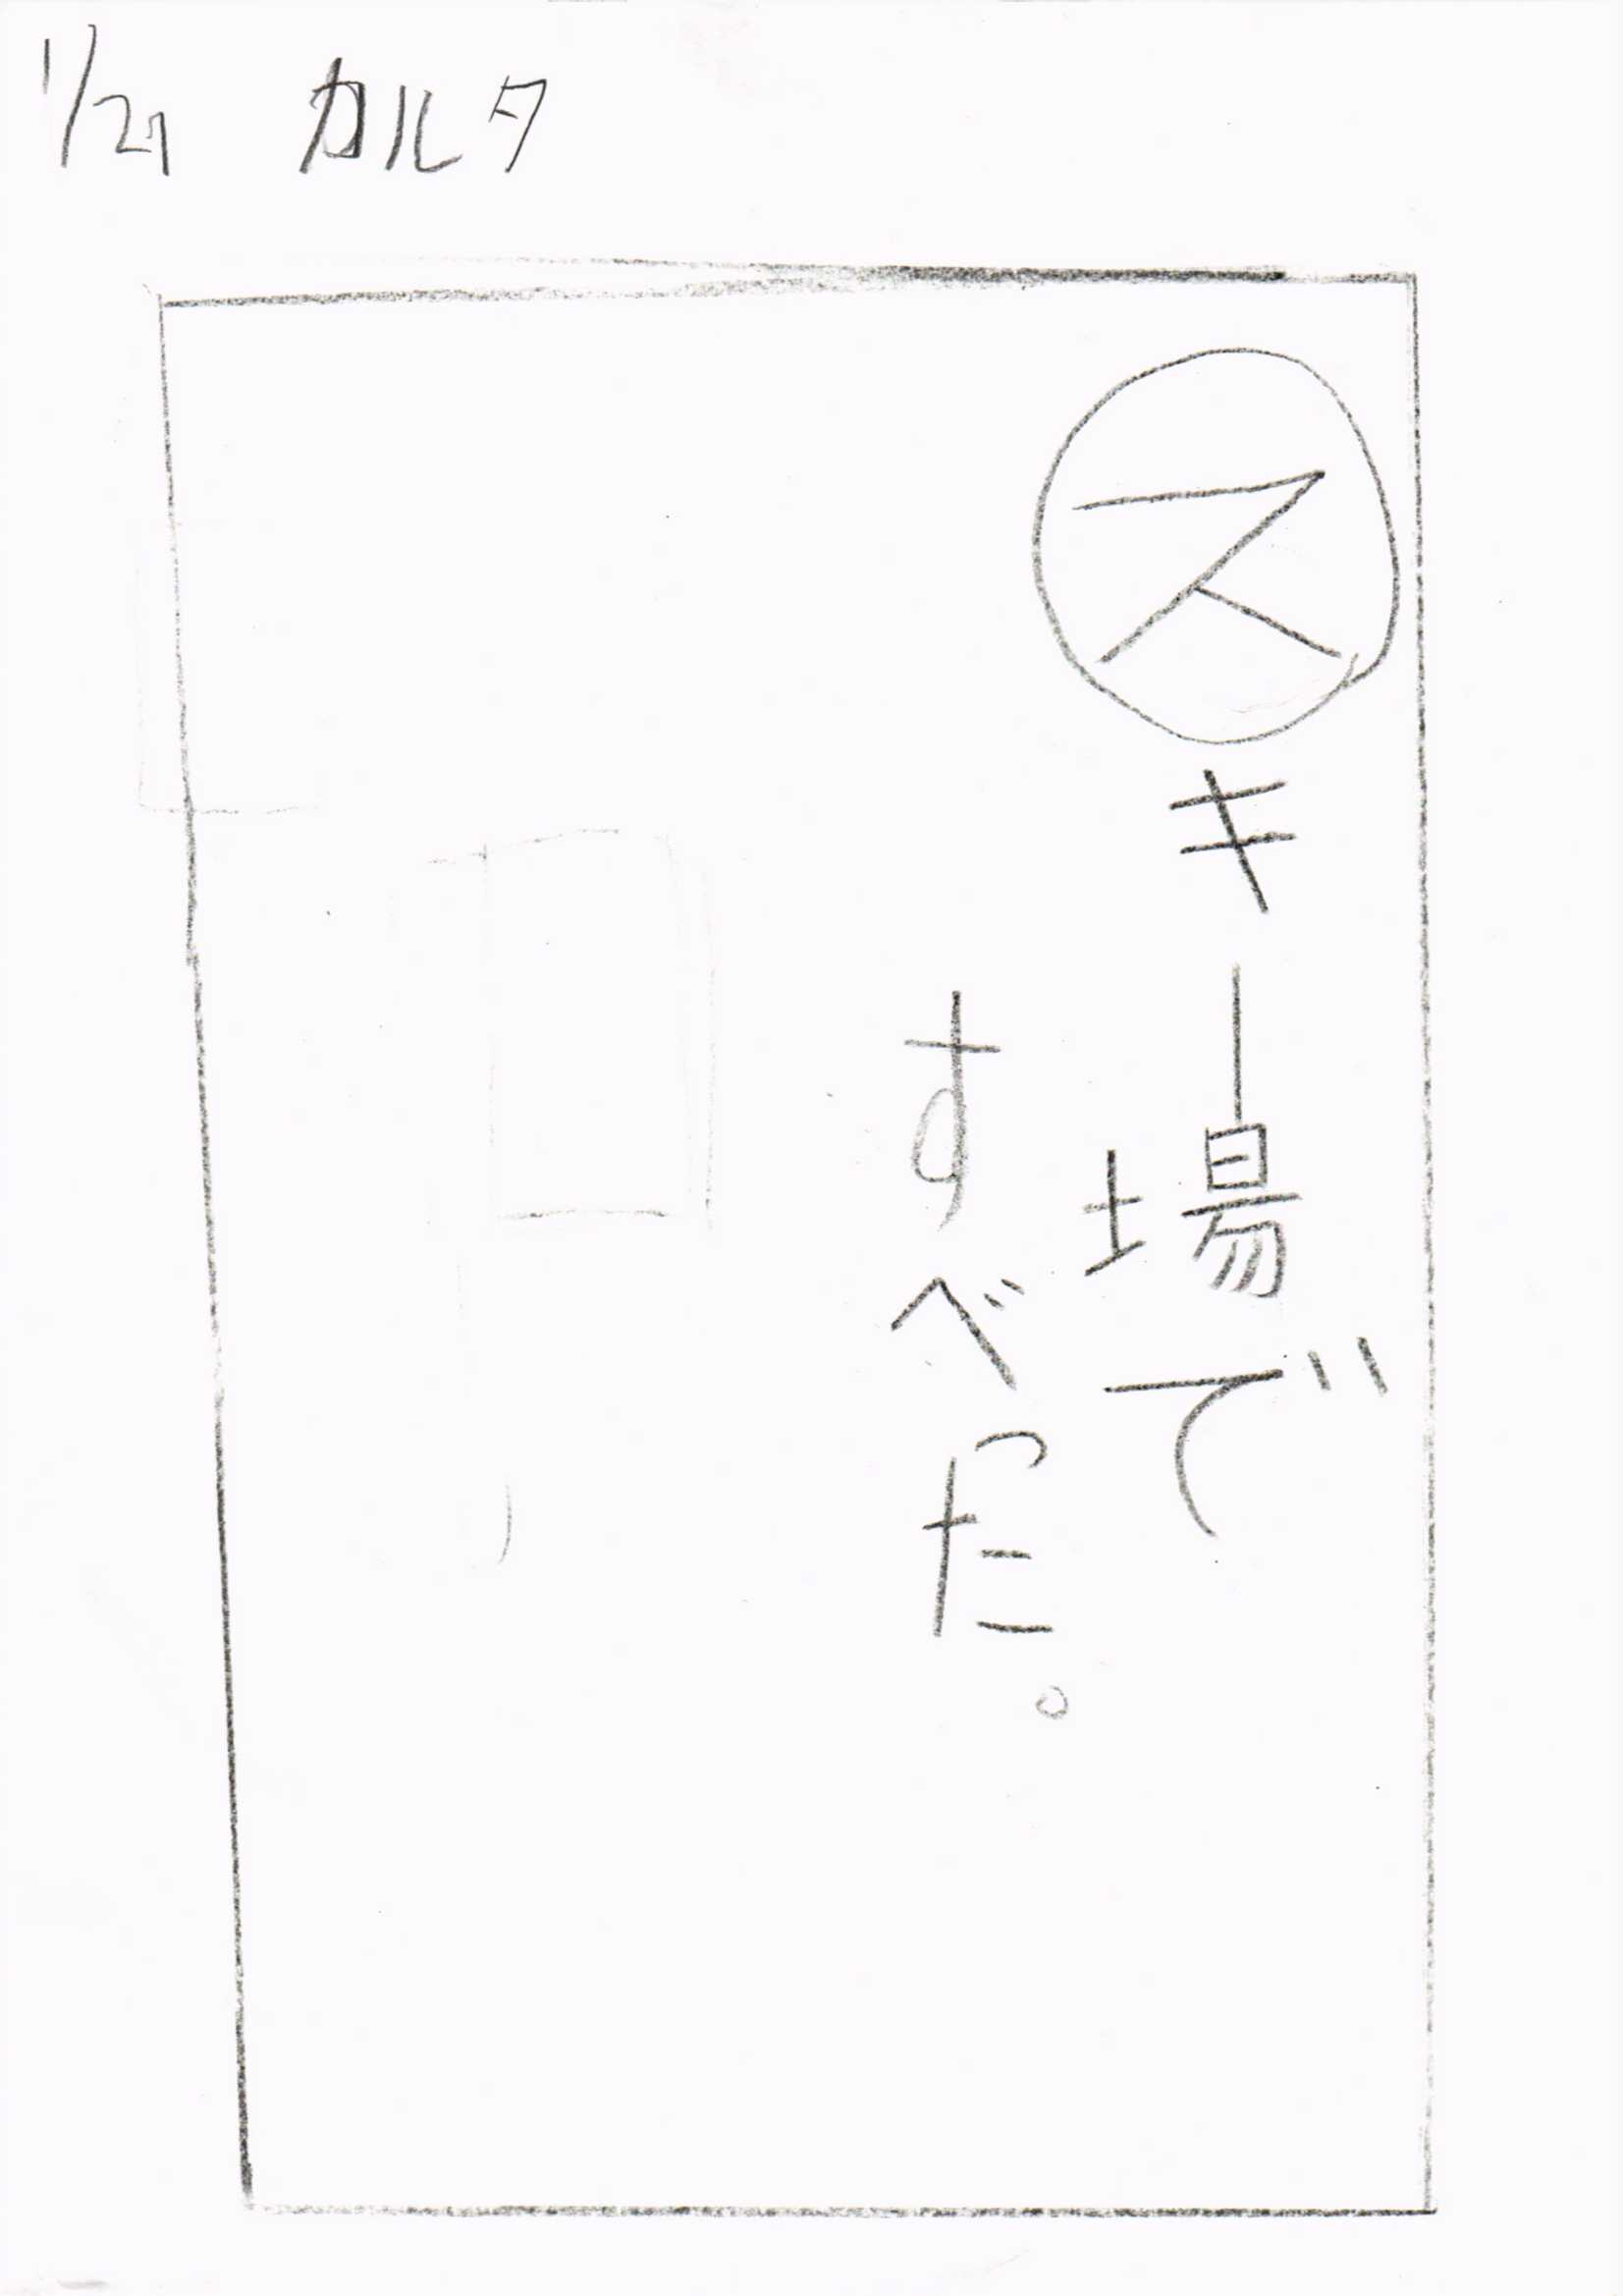 1/27 カルタ
スキー場で
すべった。